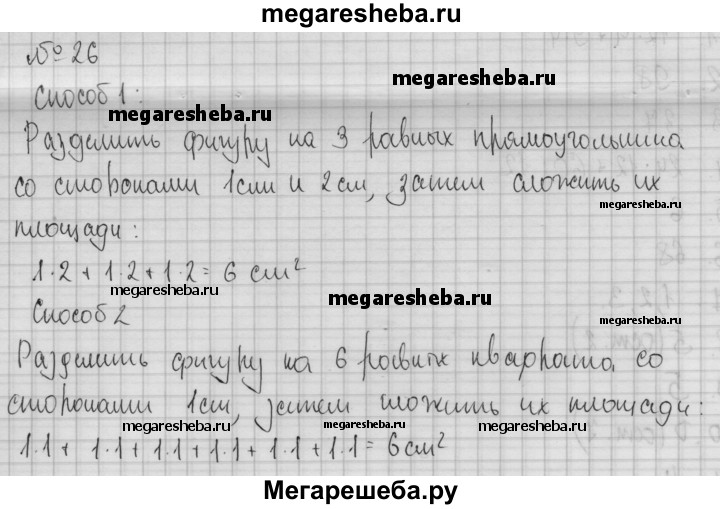 megaresheba.ru
№ 26
Способ 1:
megaresheba.ru
megaresheba.ru
Разделить фигуру на 3 равных прямоугольника
со сторонами 1см и 2см, затем сложить их
megaresheba.ru
площади:
1·2 + 1·2 + 1·2 = 6 см²
megaresheba.ru
megaresheba.ru
Способ 2
megaresheba.ru
Разделить фигуру на 6 равных квадрата со
сторонами 1см, затем сложить их площади:
megaresheba.ru megaresheba.ru megaresheba.ru
1·1 + 1·1 + 1·1 + 1·1 + 1·1 + 1·1 = 6см²
Мегарешеба.ру